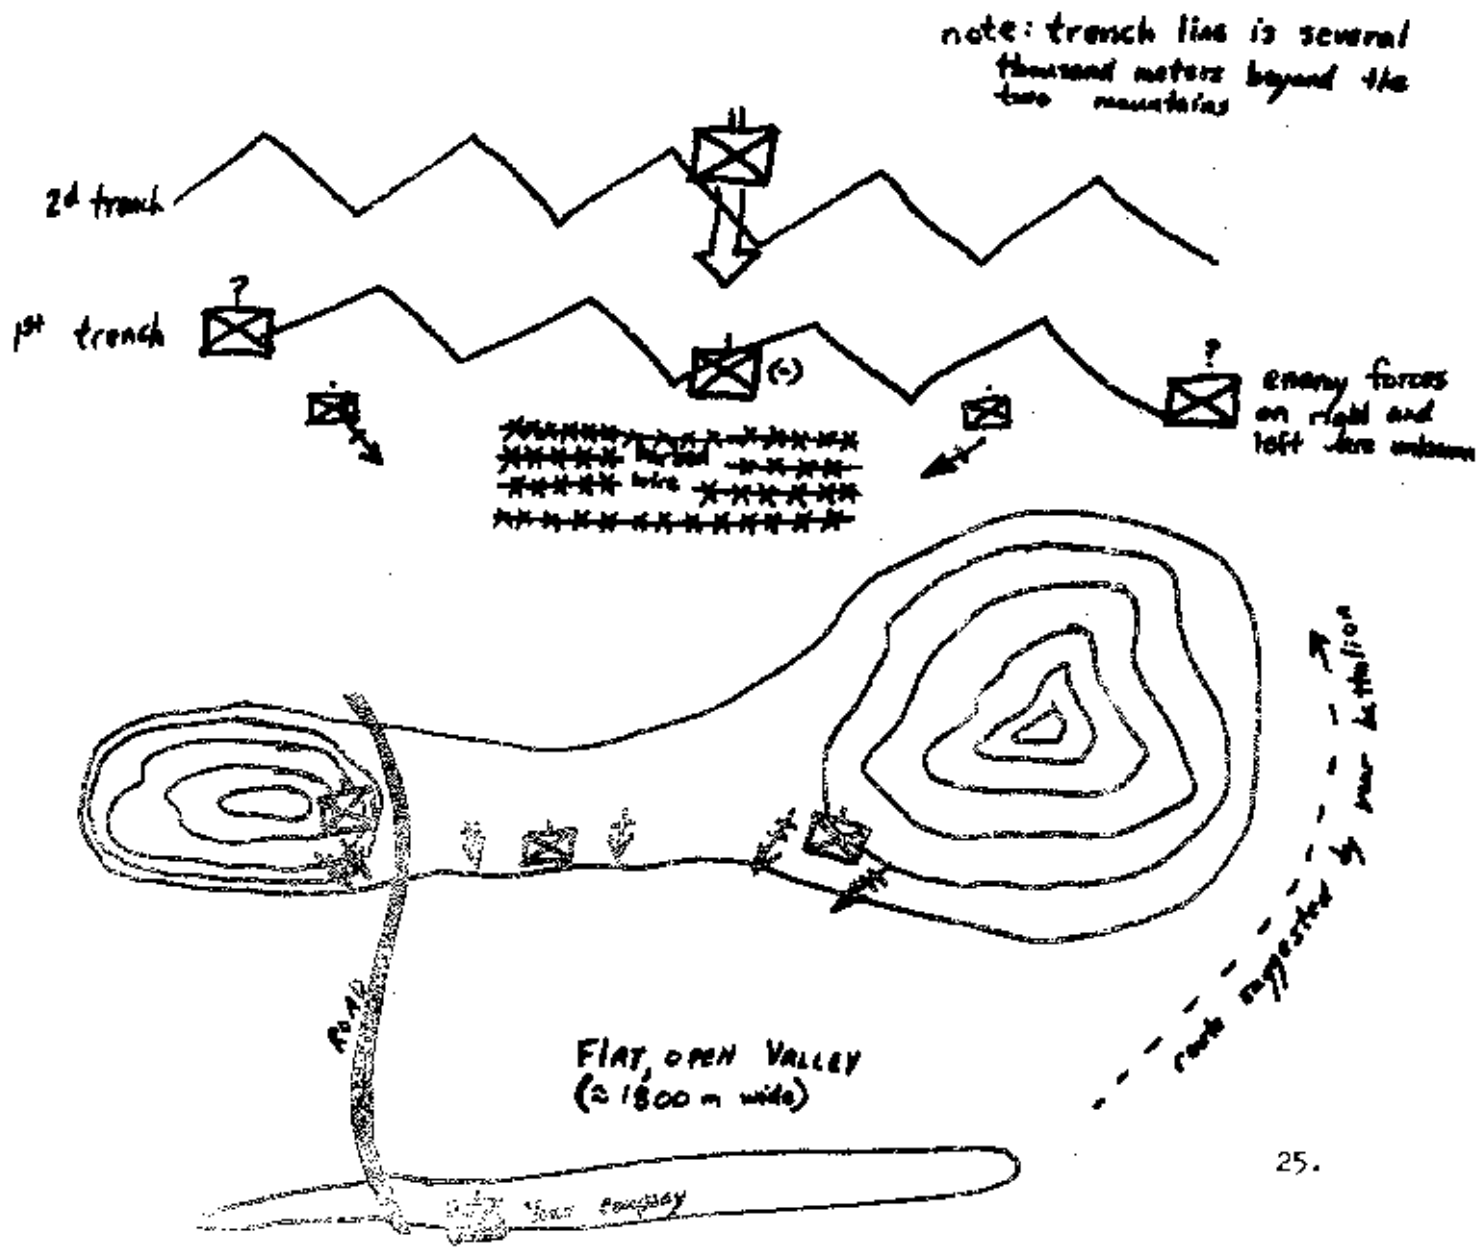 note: trench line is several
thousand meters beyond the
two mountains
2d trench
?
1st trench
(-)
?
enemy forces
on right and
left were unknown
barbed
wire
route suggested by your battalion
Road
FLAT, OPEN VALLEY
(≈ 1800 m wide)
25.
Your company